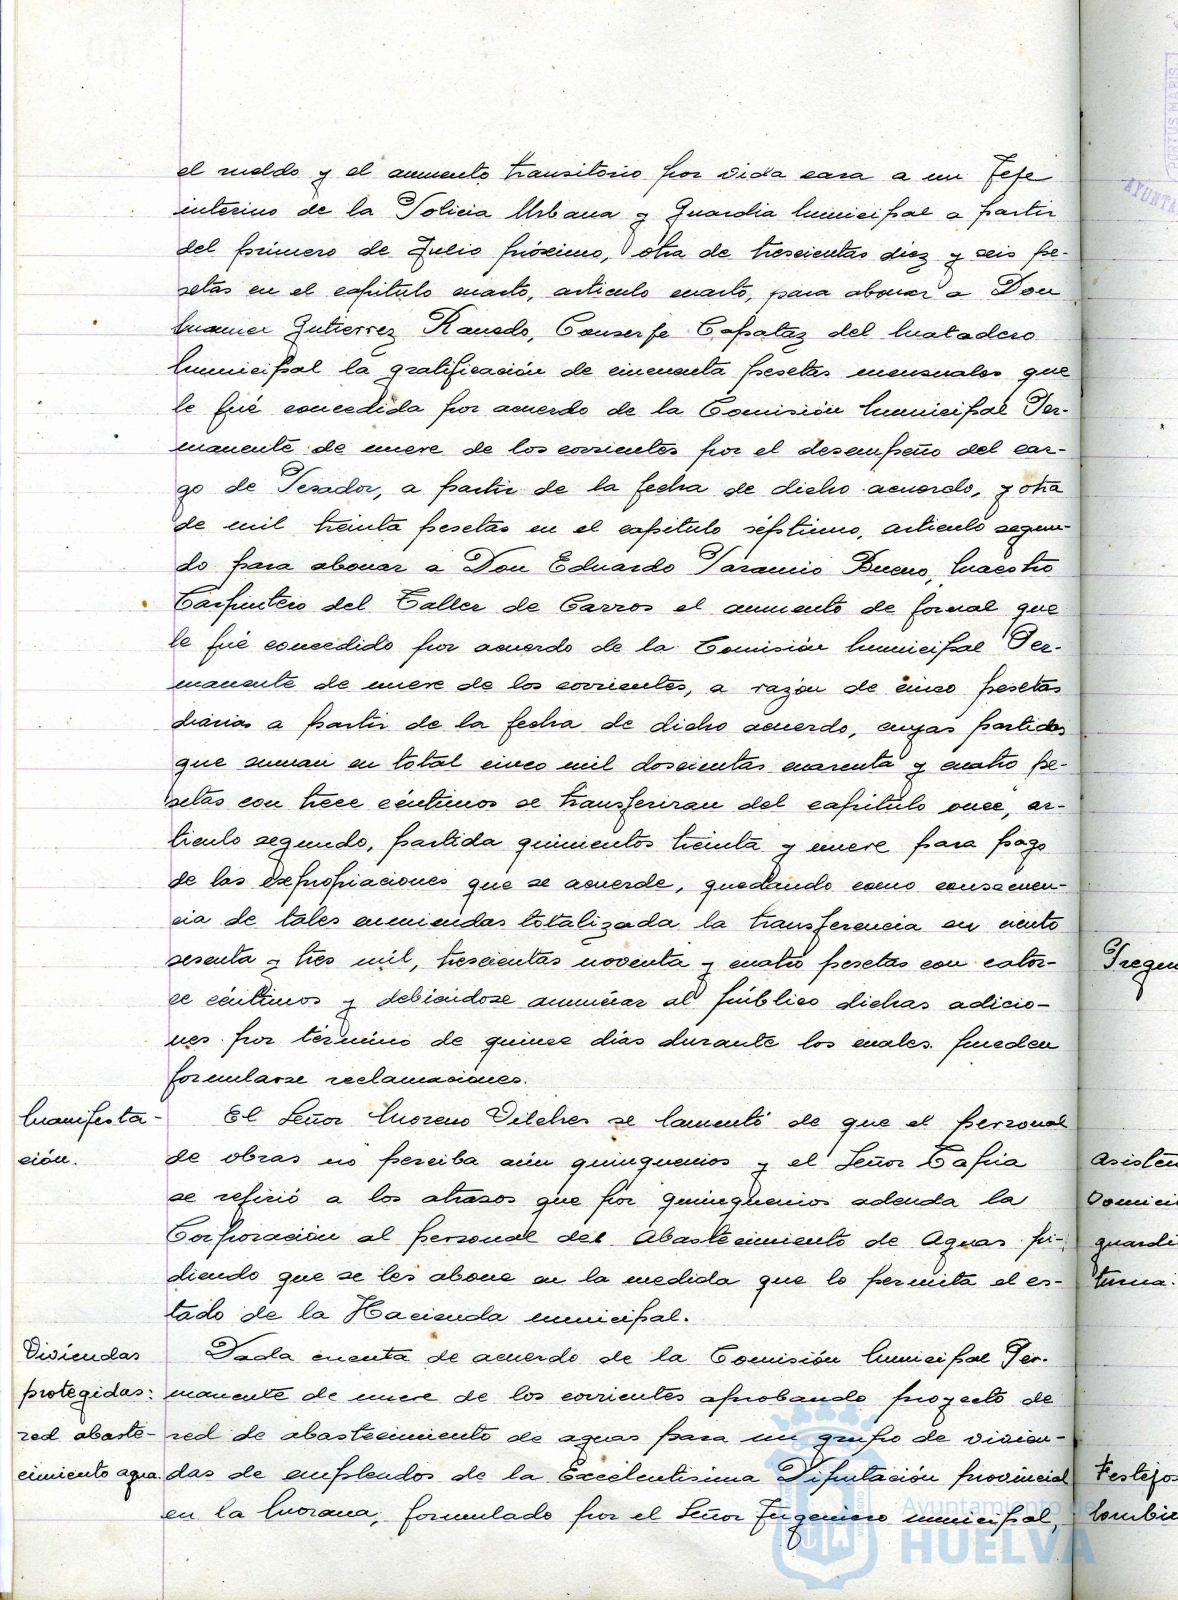 el sueldo y el aumento transitorio por vida cara a un Jefe
interino de la Policia Urbana y Guardia Municipal a partir
del primero de Julio próximo, otra de trescientas diez y seis pe-
setas en el capitulo cuarto, articulo cuarto, para abonar a Don
Manuel Gutierrez Ranedo, Conserje Capataz del Matadero
Municipal la gratificación de cincuenta pesetas mensuales que
le fué concedida por acuerdo de la Comisión Municipal Per-
manente de nueve de los corrientes por el desempeño del car-
go de Pesador, a partir de la fecha de dicho acuerdo, y otra
de mil treinta pesetas en el capitulo séptimo, articulo segun-
do para abonar a Don Eduardo Paramio Bueno, Maestro
Carpintero del Taller de Carros el aumento de jornal que
le fué concedido por acuerdo de la Comisión Municipal Per-
manente de nueve de los corrientes, a razón de cinco pesetas
diarias a partir de la fecha de dicho acuerdo, cuyas partidas
que suman en total cinco mil doscientas cuarenta y cuatro pe-
setas con trece céntimos se transferiran del capítulo once, ar-
ticulo segundo, partida quinientos treinta y nueve para pago
de las expropiaciones que se acuerde, quedando como consecuen-
cia de tales enmiendas totalizada la transferencia en ciento
sesenta y tres mil, trescientas noventa y cuatro pesetas con cator-
ce céntimos y debiéndose anunciar al público dichas adicio-
nes por término de quince días durante los cuales pueden
formularse reclamaciones.
Manifesta-
ción.
El Señor Moreno Vilches se lamentó de que el personal
de obras no perciba aún quinquenios y el Señor Tapia
se refirió a los atrasos que por quinquenios adeuda la
Corporación al personal del Abastecimiento de Aguas pi-
diendo que se les abone en la medida que lo permita el es-
tado de la Hacienda municipal.
Viviendas
protegidas:
red abaste-
cimiento agua.
Dada cuenta de acuerdo de la Comisión Municipal Per-
manente de nueve de los corrientes aprobando proyecto de
red de abastecimiento de aguas para un grupo de vivien-
das de empleados de la Excelentísima Diputación provincial
en la Morana, formulado por el Señor Ingeniero municipal,
Pregun
Asisten
Domici
guardi
turna.
Festejos
Ayuntamiento de
HUELVA